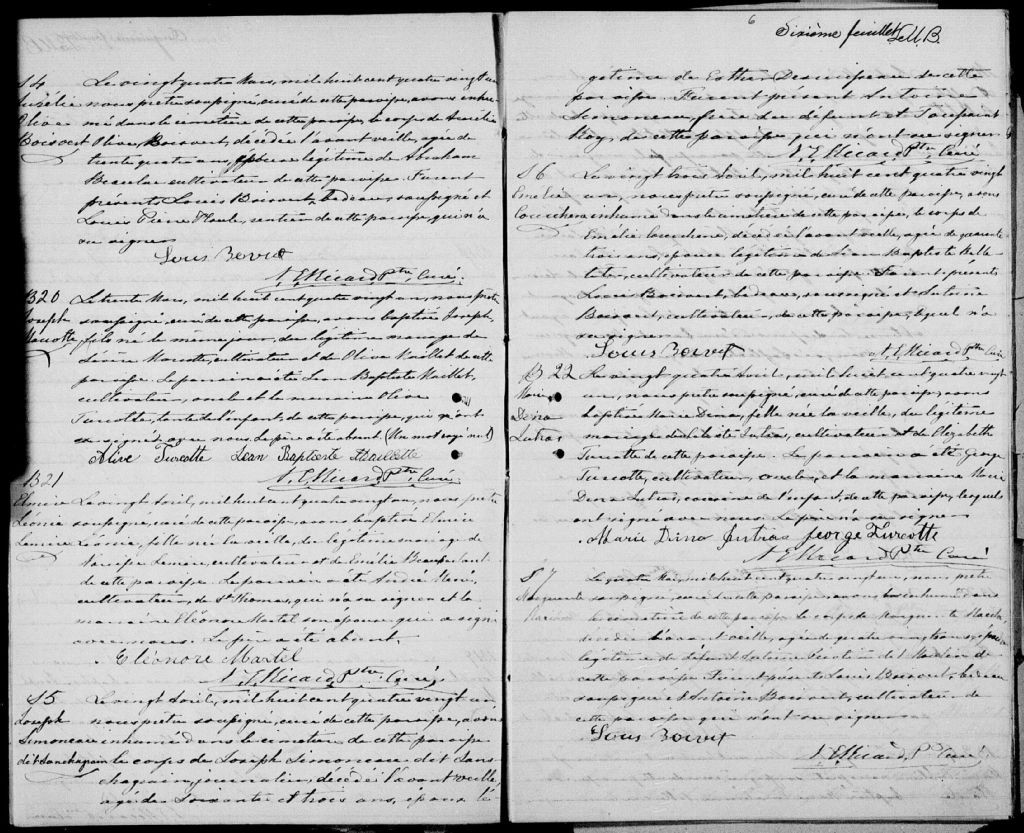 S4
Aurélie
Olive
Boisvert
Le vingt quatre Mars, mil huit cent quatre vingt un
nous prêtre soussigné, curé de cette paroisse, avons inhu-
mé dans le cimetière de cette paroisse, le corps de Aurélie
Olive Boisvert, décédée l'avant veille, agée de
trente quatre ans, épouse légitime de Abraham
cultivateur de cette paroisse. Furent
présents Louis Boisvert, bedeau soussigné et
Louis Pierre, rentier de cette paroisse, qui n'a
su signer
Louis Bovet
N. E. Ricard Ptre, Curé.
B20
Joseph
Marcotte
Le trente Mars, mil huit cent quatre vingt un, nous prêtre
soussigné, curé de cette paroisse, avons baptisé Joseph,
fils né le même jour, du légitime mariage de
Marcotte, cultivateur et de Olive Maillet de cette
paroisse. Le parrain a été Jean Baptiste Maillet,
cultivateur, oncle et la marraine Olive
Turcotte, tante de l'enfant, de cette paroisse, qui ont
signé avec nous. Le père a été absent. (Un mot rayé nul)
Olive Turcotte Jean Baptiste Maillette
N. E. Ricard Ptre, Curé.
B21
Elmire
Léonie
Lemire
Le vingt Avril, mil huit cent quatre vingt un, nous prêtre
soussigné, curé de cette paroisse, avons baptisé Elmire
Léonie, fille née la veille, du légitime mariage de
Narcisse Lemire, cultivateur et de Emélie
de cette paroisse. Le parrain a été André
cultivateur, de St Thomas, qui n'a su signer et la
marraine Eléonore Martel son épouse qui a signé
avec nous. Le père a été absent.
Eléonore Martel
N. E. Ricard, Ptre Curé.
S5
Joseph
Simoneau
dit Sanschagrin
Le vingt Avril, mil huit cent quatre vingt un
nous prêtre soussigné, curé de cette paroisse, avons
inhumé dans le cimetière de cette paroisse
le corps de Joseph Simoneau dit Sans-
chagrin, journalier, décédé l'avant veille,
agé de soixante et trois ans, époux lé-
6
Sixième feuillet L.U.B.
gitime de Esther de cette
paroisse. Furent présent Antoine
Simoneau, frère du défunt et Toussaint
de cette paroisse qui n'ont su signer
N. E. Ricard Ptre, Curé
S6
Emélie
Courchene
Le vingt trois Avril, mil huit cent quatre vingt
un, nous prêtre soussigné, curé de cette paroisse, avons
inhumé dans le cimetière de cette paroisse, le corps de
Emélie Courchene, décédée l'avant veille, agée de quarante
trois ans, épouse légitime de Jean Baptiste
cultivateur de cette paroisse. Furent présents
Louis Boisvert, bedeau, soussigné et Antoine
Boisvert, cultivateur, de cette paroisse, lequel n'a
su signer
Louis Bovet N. E. Ricard Ptre Curé
B 22
Marie
Dina
Jutras
Le vingt quatre Avril, mil huit cent quatre vingt
un, nous prêtre soussigné, curé de cette paroisse, avons
baptisé Marie Dina, fille née la veille, du légitime
mariage de Jutras, cultivateur et de Elizabeth
Turcotte de cette paroisse. Le parrain a été George
Turcotte, cultivateur, oncle, et la marraine Marie
Dina Jutras, cousine de l'enfant, de cette paroisse, lesquels
ont signé avec nous. Le père n'a su signer
Marie Dina Jutras George Turcotte
N. E. Ricard Ptre Curé
S7
Marguerite
Le quatre Mai, mil huit cent quatre vingt un, nous prêtre
soussigné, curé de cette paroisse, avons inhumé dans
le cimetière de cette paroisse le corps de Marguerite
décédée l'avant veille, agée de quatre vingt
légitime de défunt Antoine
cette paroisse. Furent présents Louis Boisvert, bedeau
soussigné et Antoine Boisvert, cultivateur, de
cette paroisse qui n'ont su signer
Louis Bovet
N. E. Ricard, Ptre Curé